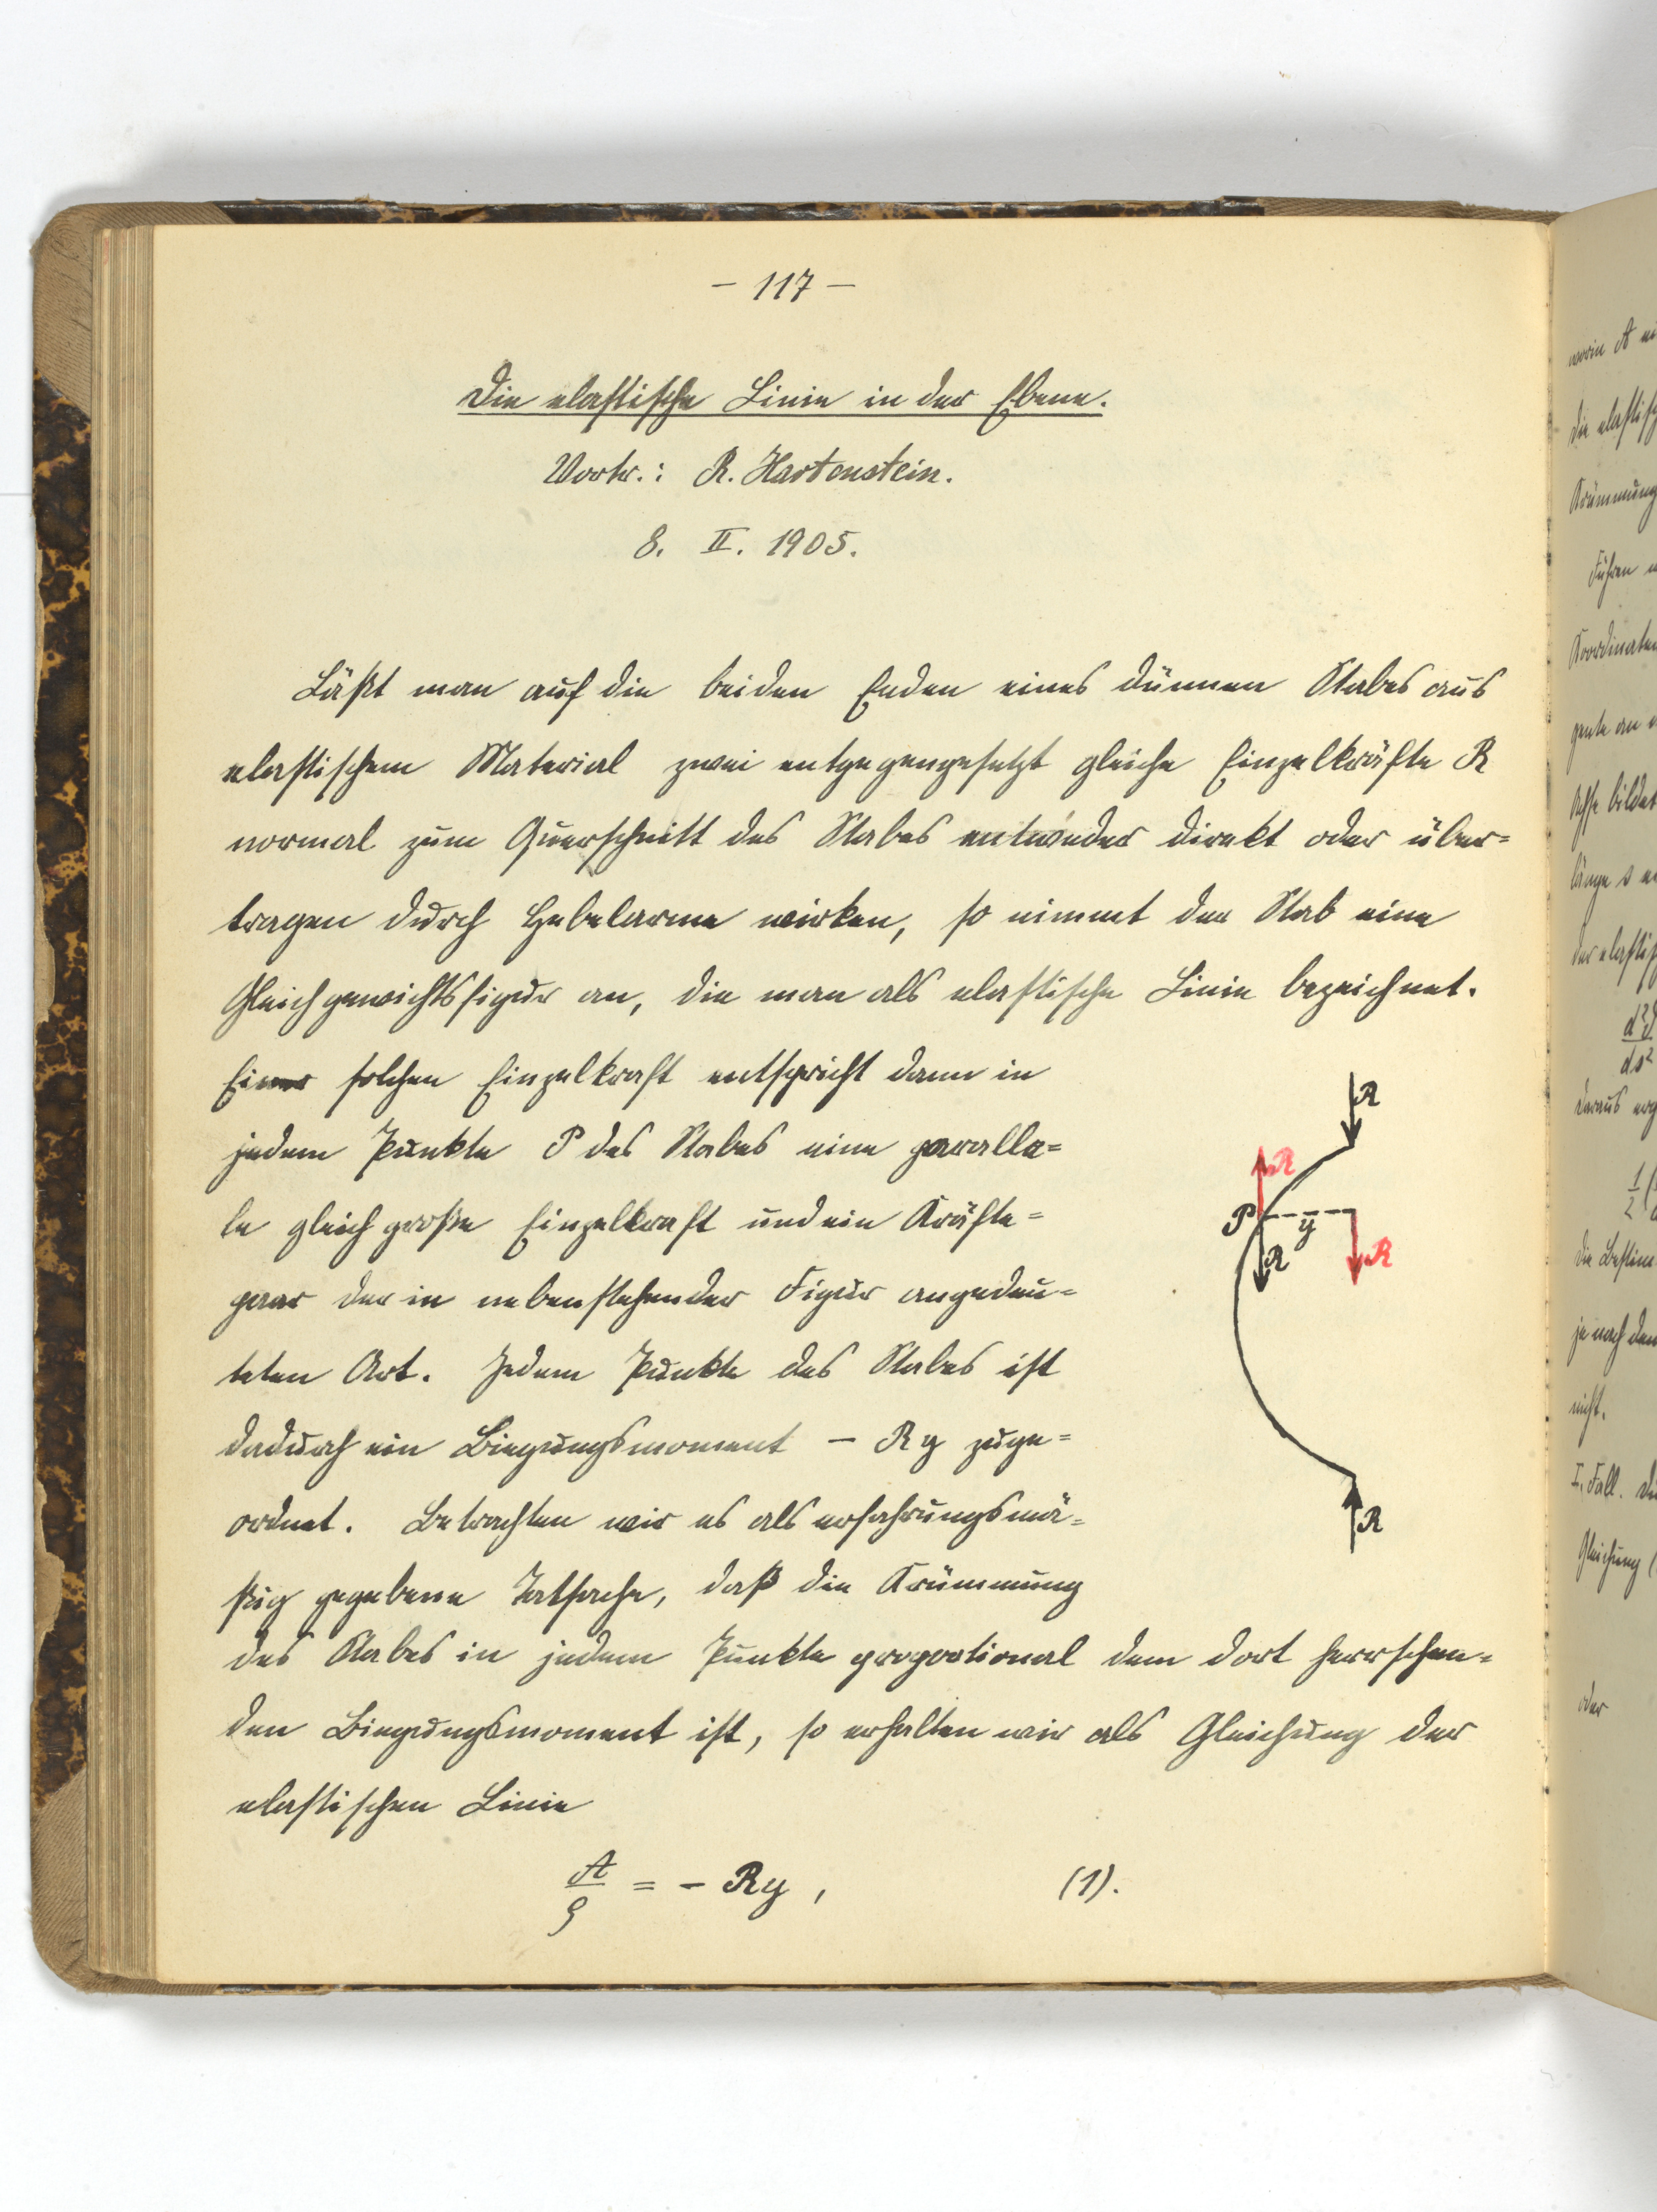 – 117 –
Die elastische Linie in der Ebene.
Vortr.: R. Hartenstein.
8. II. 1905.
Läßt man auf die beiden Enden eines dünnen Stabes aus
elastischem Material zwei entgegengesetzt gleiche Einzelkräfte R
normal zum Querschnitt des Stabes entweder direkt oder über=
tragen durch Hebelarme wirken, so nimmt der Stab eine
Gleichgewichtsfigur an, die man als elastische Linie bezeichnet.
Einer solchen Einzelkraft entspricht dann in
jedem Punkte P des Stabes eine paralle=
le gleich große Einzelkraft und ein Kräfte=
paar der in nebenstehender Figur angedeu=
teten Art. Jedem Punkte des Stabes ist
dadurch ein Biegungsmoment – Ry zuge=
ordnet. Betrachten wir es als erfahrungsmä=
ßig gegebene Tatsache, daß die Krümmung
des Stabes in jedem Punkte proportional dem dort herrschen=
den Biegungsmoment ist, so erhalten wir als Gleichung der
elastischen Linie
A/ρ = – Ry , (1).
R
R
P y
R R
R
worin A
die elastisch
Krümmung
Führen
Koordinaten
gente an
Achse bildet
länge s
der elastis
d²ϑ
ds²
daraus
1/2 (
Die Bestim
je nach dem
nicht.
I. Fall.
Gleichung (
oder